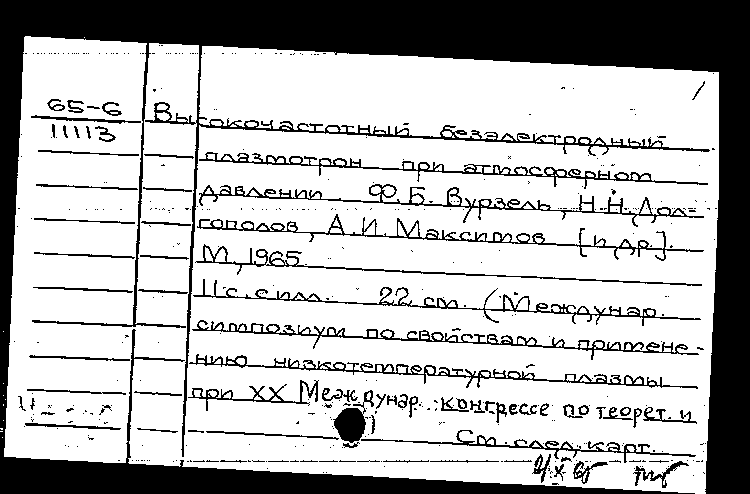 65-6 Высокочастотный безэлектродный
11113 плазмотрон при атмосферном
давлении. Ф.Б. Вурзель, Н.Н. Дол=
гополов, А.И. Максимов [и др.].
М, 1965.
11 с. с илл. 22 см. (Междунар.
симпозиум по свойствам и примене-
нию низкотемпературной плазмы
при XX Междунар. конгрессе по теорет. и
См. след. карт.